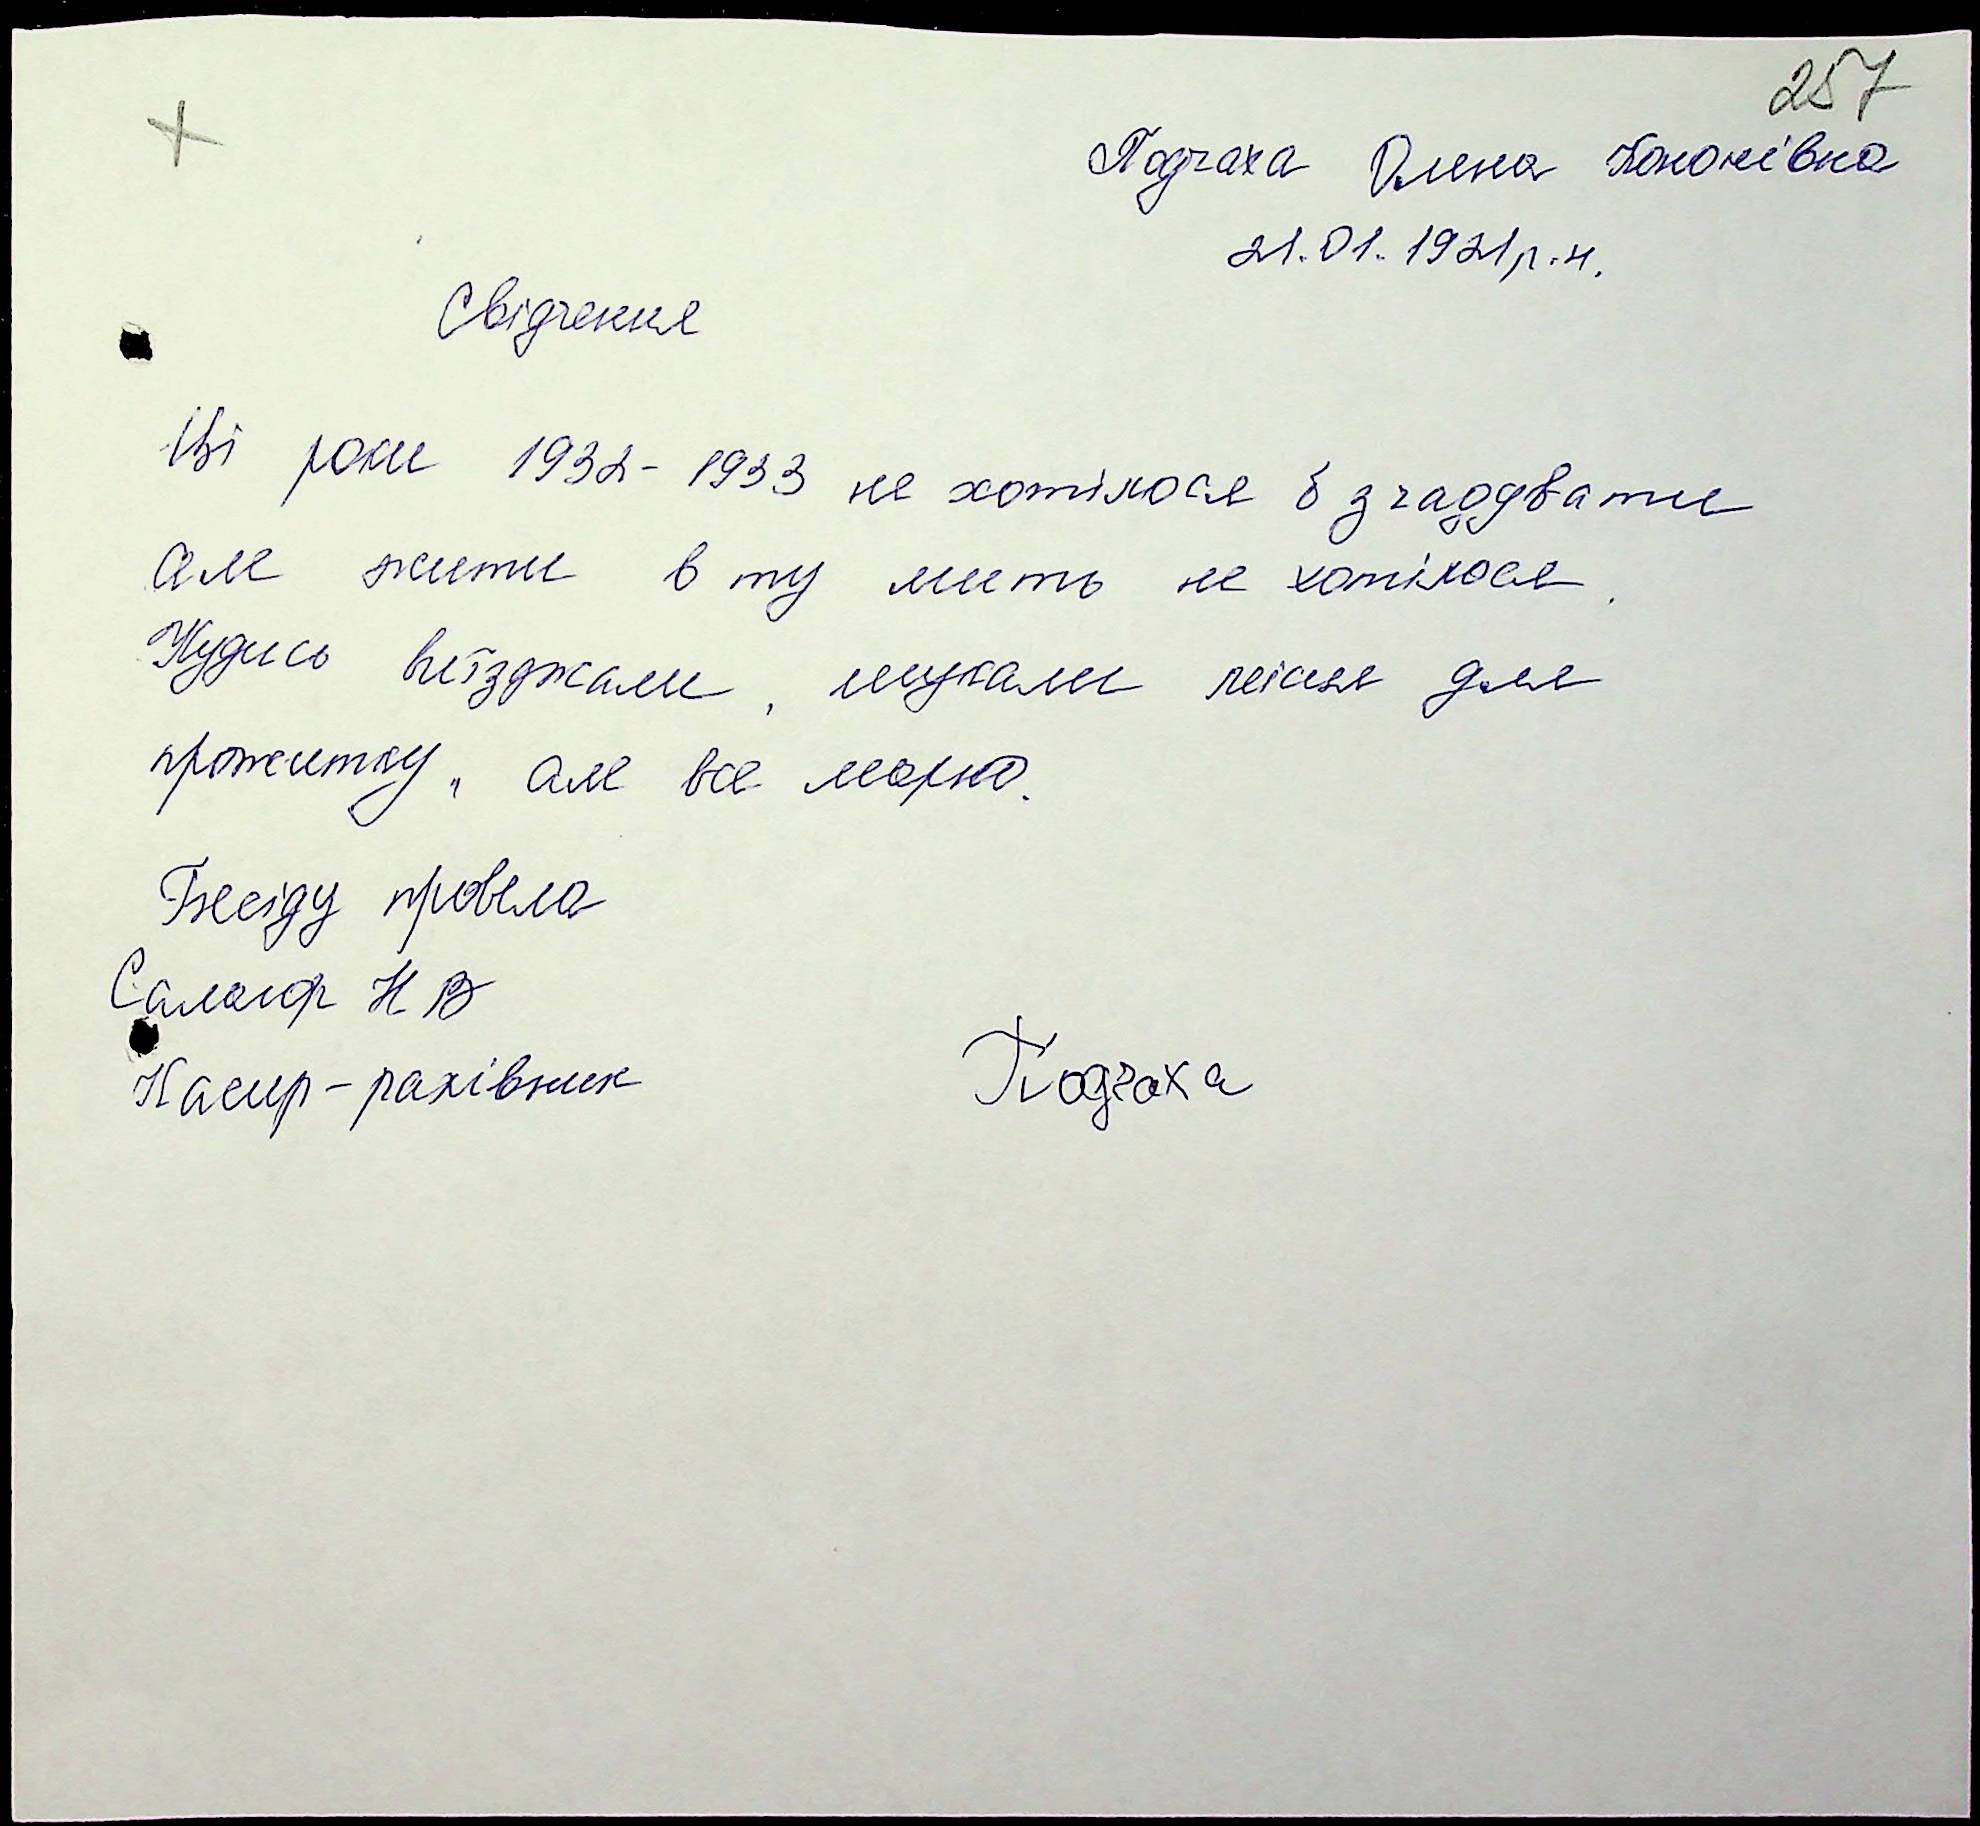 257
Подгаха Олена Кононівна
21.01.1921 р.н.
Свідчення
Ці роки 1932-1933 не хотілося б згадувати
але жити в ту мить не хотілося.
Кудись виїзджали, шукали місця для
прожитку, але все марно.
Бесіду провела
Салогор Н В
Касир-рахівник
Подгаха